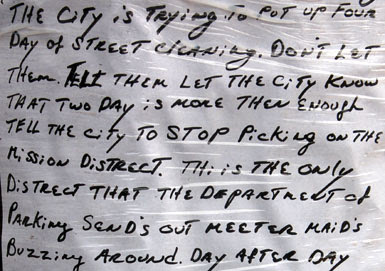 THE CITY is TRYING TO PUT UP FOUR
DAY of STREET cleaning. DON'T LET
THEM. TELL THEM LET THE CITY KNOW
THAT TWO DAY is MORE THEN ENOUGH
TELL THE CITY TO STOP Picking ON THE
Mission DISTRECT. THis is THE ONLY
DISTRECT THAT THE DEPARTMENT of
PARKING SEND'S OUT MEETER MAID'S
BUZZING AROUND. DAY AFTER DAY